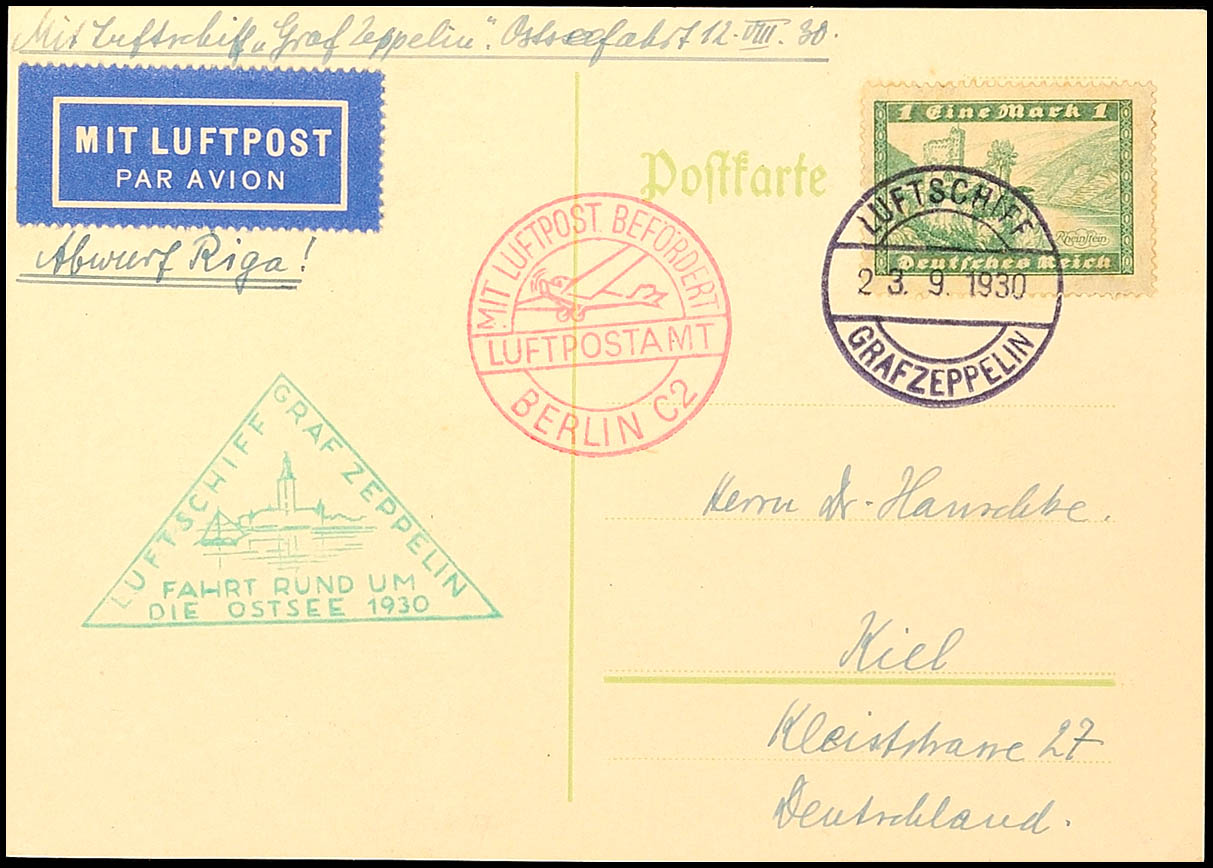 Mit Luftschiff „Graf Zeppelin“. Ostseefahrt 12.VIII.30.
MIT LUFTPOST
PAR AVION
Abwurf Riga!
Postkarte
1 Eine Mark 1
Rheinstein
Deutsches Reich
LUFTSCHIFF
23.9.1930
GRAF ZEPPELIN
MIT LUFTPOST BEFÖRDERT
LUFTPOSTAMT
BERLIN C2
LUFTSCHIFF GRAF ZEPPELIN
FAHRT RUND UM
DIE OSTSEE 1930
Herrn Dr. Hauschke.
Kiel
Kleiststrasse 27
Deutschland.